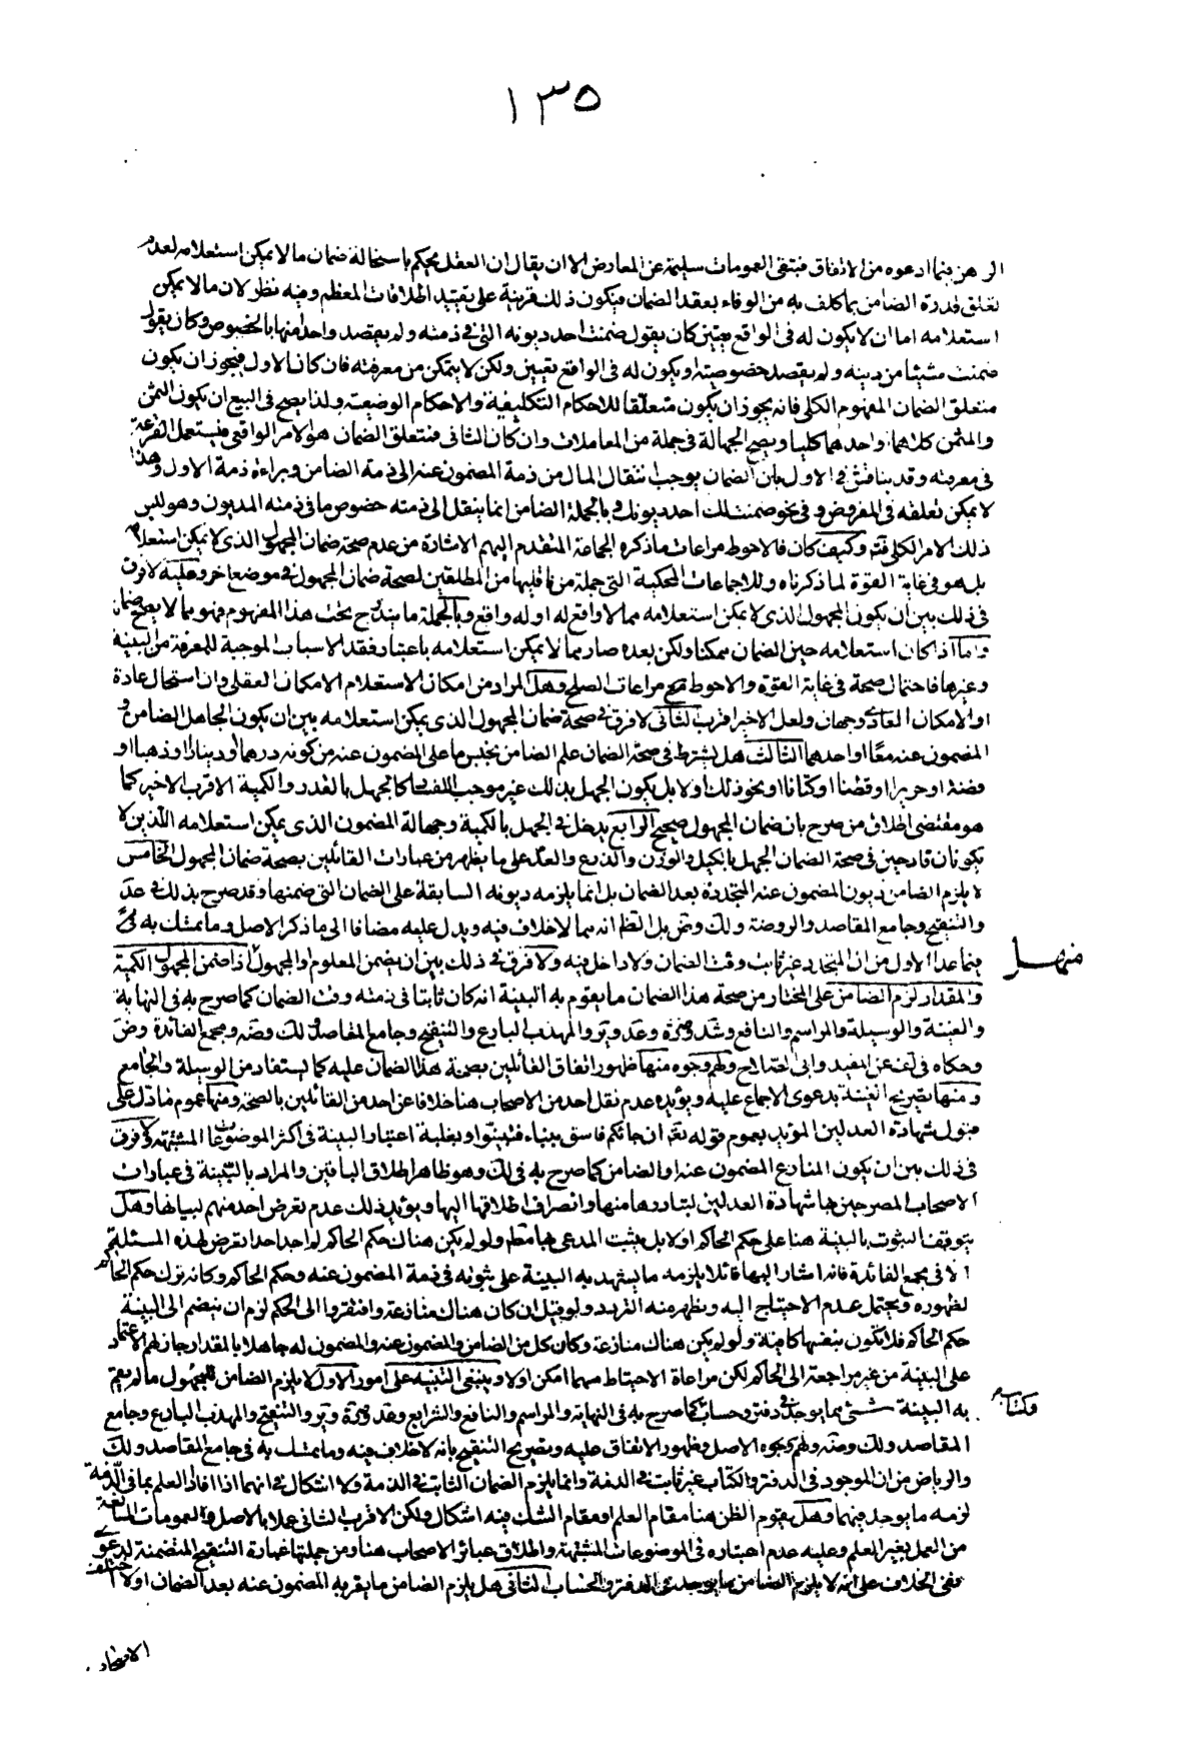 ١٣٥
الرهن بما ادعوه من الاتفاق فتبقى العمومات سليمة عن المعارض الا ان يقال ان العقل يحكم باستحالة ضمان ما لا يمكن استعلامه لعدم
تعلق قدرة الضامن بما كلف به من الوفاء بعقد الضمان فيكون ذلك قرينة على تقييد اطلاقات المعظم وفيه نظر لان ما لا يمكن
استعلامه اما ان لا يكون له فى الواقع تعيين كان يقول ضمنت احد ديونه التى فى ذمته ولم يقصد واحدا منها بالخصوص وكان يقول
ضمنت شيئا من دينه ولم يقصد خصوصيته او يكون له فى الواقع تعيين ولكن لا يتمكن من معرفته فان كان الاول فيجوز ان يكون
متعلق الضمان المفهوم الكلى فانه يجوز ان يكون متعلقا للاحكام التكليفية والاحكام الوضعية ولذا يصح فى البيع ان يكون الثمن
والمثمن كلاهما او احدهما كليا ويصح الجهالة فى جملة من المعاملات وان كان الثانى فمتعلق الضمان هو الامر الواقعى فيستعمل القرعة
فى معرفته وقد يناقش فى الاول بان الضمان يوجب انتقال المال من ذمة المضمون عنه الى ذمة الضامن وبراءة ذمة الاول وهذا
لا يمكن تعلقه فى المفروض وفى نحو ضمنت لك احد ديونك وبالجملة الضامن انما ينقل الى ذمته خصوص ما فى ذمته المديون وهو ليس
ذلك الامر الكلى فتم وكيف كان فالاحوط مراعات ما ذكره الجماعة المتقدم اليهم الاشارة من عدم صحة ضمان المجهول الذى لا يمكن استعلامه
بل هو فى غاية القوة لما ذكرناه وللاجماعات المحكية التى جملة من ناقليها من المطلقين لصحة ضمان المجهول فى موضع اخر وعليه لا فرق
فى ذلك بين ان يكون المجهول الذى لا يمكن استعلامه مما لا واقع له او له واقع وبالجملة ما يندرج تحت هذا المفهوم فهو مما لا يصح ضمانه
واما اذا كان استعلامه حين الضمان ممكنا ولكن بعده صار مما لا يمكن استعلامه باعتبار فقد الاسباب الموجبة للمعرفة من البينة
وغيرها فاحتمال صحة فى غاية القوة والاحوط مع مراعات الصلح وهل المراد من امكان الاستعلام الامكان العقلى وان استحال عادة
او الامكان العادى وجهان ولعل الاخير اقرب الثانى لا فرق فى صحة ضمان المجهول الذى يمكن استعلامه بين ان يكون الجاهل الضامن و
المضمون عنه معًا او احدهما الثالث هل يشترط فى صحة الضمان علم الضامن بجنس ما على المضمون عنه من كونه درهما او دينارا او ذهبا او
فضة او حريرا او قطنا او كتانا او نحو ذلك او لا بل يكون الجهل بذلك غير موجب للفساد كالجهل بالقدر والكمية الاقرب الاخير كما
هو مقتضى اطلاق من صرح بان ضمان المجهول صحيح الرابع يدخل فى الجهل بالكمية وجهالة المضمون الذى يمكن استعلامه اللذين لا
يكونان قادحين فى صحة الضمان الجهل بالكيل والوزن والذرع والعد على ما يظهر من عبارات القائلين بصحة ضمان المجهول الخامس
لا يلزم الضامن ديون المضمون عنه المتجددة بعد الضمان بل انما يلزمه ديونه السابقة على الضمان التى ضمنها وقد صرح بذلك فى عد
والتنقيح وجامع المقاصد والروضة ولك وض بل الظ انه مما لا خلاف فيه ويدل عليه مضافا الى ما ذكر الاصل وما تمسك به فى
فيما عدا الاول من ان المتجدد غير ثابت وقت الضمان ولا داخل فيه ولا فرق فى ذلك بين ان يضمن المعلوم والمجهول
منهل
اذا ضمن المجهول الكمية
والمقدار لزم الضامن على المختار من صحة هذا الضمان ما يقوم به البينة انه كان ثابتا فى ذمته وقت الضمان كما صرح به فى النهاية
والغنية والوسيلة والمراسم والنافع وشد وعد وير والمهذب البارع والتنقيح وجامع المقاصد ولك وضه ومجمع الفائدة وض
وحكاه فى لف عن المفيد وابى الصلاح ولهم وجوه منها ظهور اتفاق القائلين بصحة هذا الضمان عليه كما يستفاد من الوسيلة والجامع
ومنها تصريح الغنية بدعوى الاجماع عليه ويؤيده عدم نقل احد من الاصحاب هنا خلافا عن احد من القائلين بالصحة ومنها عموم ما دل على
قبول شهادة العدلين المؤيد بعموم قوله تعم ان جائكم فاسق بنباء فتبينوا وبغلبة اعتبار البينة فى اكثر الموضوعات المشتبهة ولا فرق
فى ذلك بين ان يكون المنازع المضمون عنه او الضامن كما صرح به فى لك وهو ظاهر اطلاق الباقين والمراد بالبينة فى عبارات
الاصحاب المصرحين بها شهادة العدلين لتبادرها منها وانصراف اطلاقها اليها ويؤيد ذلك عدم تعرض احد منهم لبيانها وهل
يتوقف الثبوت بالبينة هنا على حكم الحاكم او لا بل يثبت المدعى بها مط ولو لم يكن هناك حكم الحاكم لم اجد احدا تعرض لهذه المسئلة
الا فى مجمع الفائدة فانه اشار اليها قائلا يلزمه ما يشهد به البينة على ثبوته فى ذمة المضمون عنه وحكم الحاكم وكانه ترك حكم الحاكم
لظهوره ويحتمل عدم الاحتياج اليه ويظهر منه التردد ولو قيل ان كان هناك منازعة وافتقروا الى الحكم لزم ان ينضم الى البينة
حكم الحاكم فلا تكون بنفسها كافية ولو لم يكن هناك منازعة وكان كل من الضامن والمضمون عنه والمضمون له جاهلا بالمقدار جاز لهم الاعتماد
على البينة من غير مراجعة الى الحاكم لكن مراعاة الاحتياط مهما امكن اولى وينبغى التنبيه على امور الاول لا يلزم الضامن للمجهول ما لم يقم
به البينة مما يوجد فى دفتر وحساب كما صرح به فى النهاية والمراسم والنافع والشرايع وعد وير والتنقيح والمهذب البارع وجامع
وكتاب
المقاصد ولك وضه ولهم وجوه الاصل وظهور الاتفاق عليه وتصريح التنقيح بانه لا خلاف فيه وما تمسك به فى جامع المقاصد ولك
والرياض من ان الموجود فى الدفتر والكتاب غير ثابت فى الذمة وانما يلزم الضمان الثابت فى الذمة ولا اشكال فى انهما اذا افادا العلم بما فى الذمة
لزمه ما يوجد فيهما وهل يقوم الظن هنا مقام العلم او مقام الشك فيه اشكال ولكن الاقرب الثانى عملا بالاصل والعمومات المانعة
من العمل بغير العلم وغلبة عدم اعتباره فى الموضوعات المشتبهة واطلاق عبائر الاصحاب هنا ومن جملتها عبارة التنقيح المتضمنة لدعوى
نفى الخلاف على انه لا يلزم الضامن ما يوجد فى الدفتر والحساب الثانى هل يلزم الضامن ما يقر به المضمون عنه بعد الضمان او لا اختلف
الاصحاب